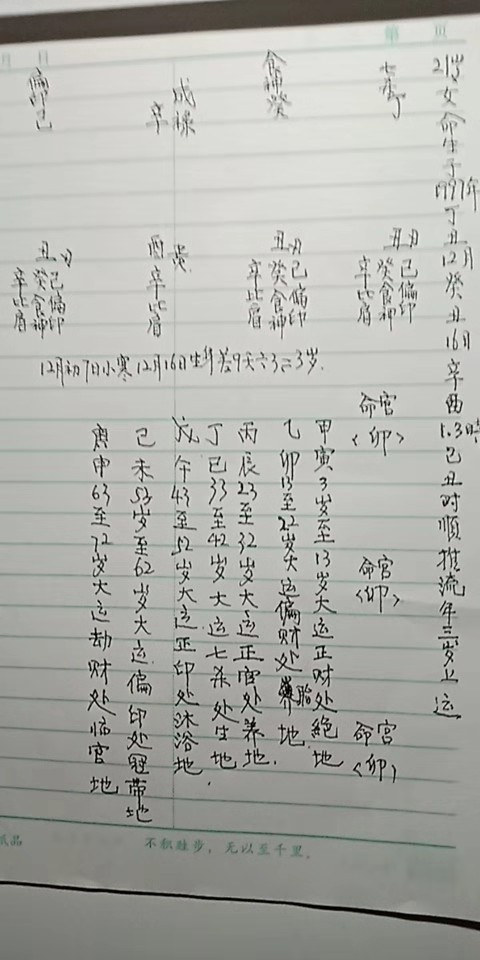 第 页
月 日
21岁女命生于1997年丁丑12月癸丑16日辛酉1.3時己丑时顺推流年三岁上运
七杀丁
食神癸
辛
偏印己
丑
己偏印
癸食神
辛比肩
丑
己偏印
癸食神
辛比肩
酉
辛比肩
丑
己偏印
癸食神
辛比肩
12月初7日小寒12月16日生
命宫
<卯>
命宫
<卯>
命宫
<卯>
甲寅3岁至13岁大运正财处绝地
乙卯13至22岁大运偏财处胎地.
丙辰23至32岁大运正官处养地.
丁巳33至42岁大运七杀处生地.
戊午43至52岁大运正印处沐浴地
己未53岁至62岁大运偏印处冠带地
庚申63至72岁大运劫财处临官地
纸品
不积跬步，无以至千里.